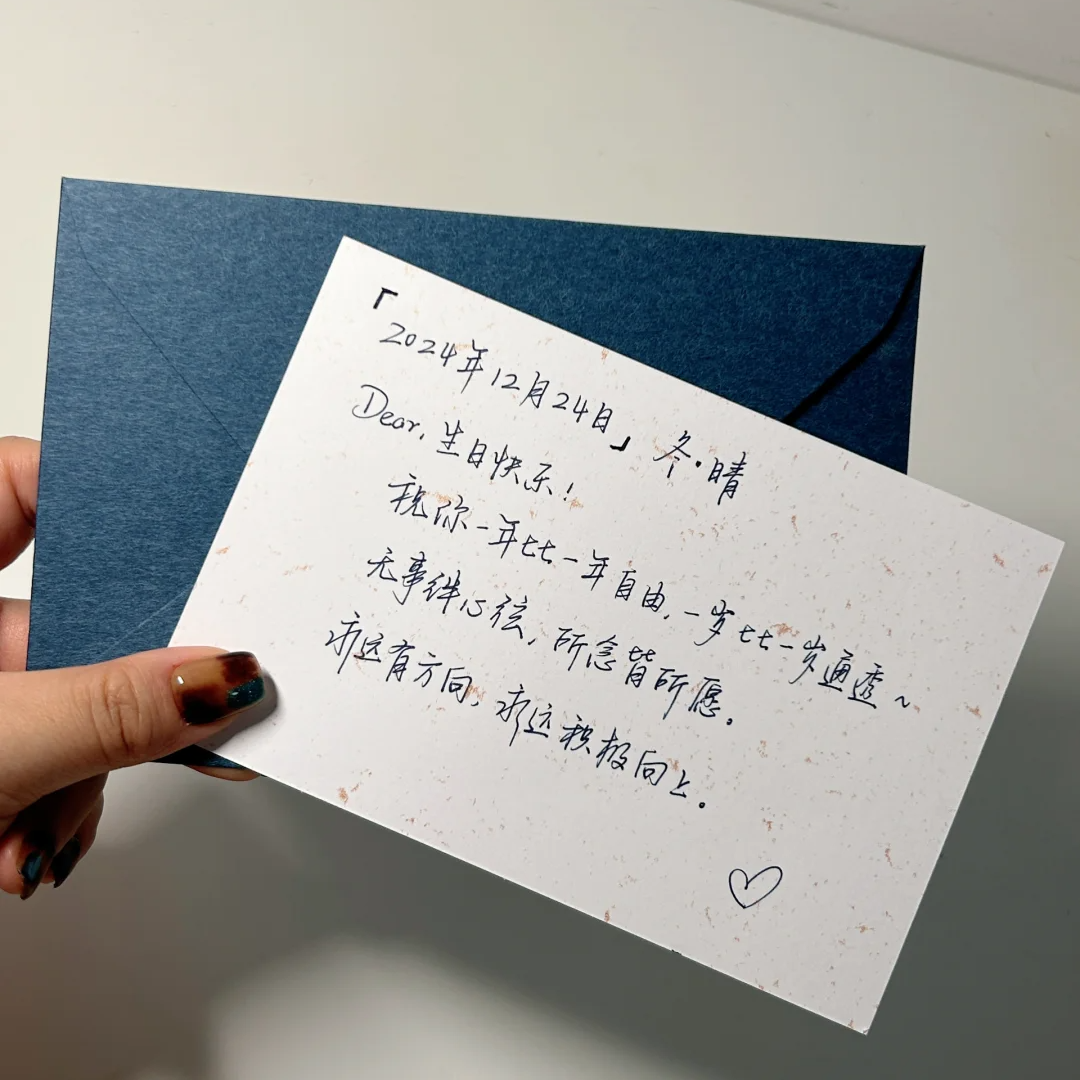 「2024年12月24日」 冬·晴
Dear, 生日快乐!
祝你一年比一年自由,一岁比一岁通透~
无事绊心弦,所念皆所愿。
永远有方向,永远积极向上。